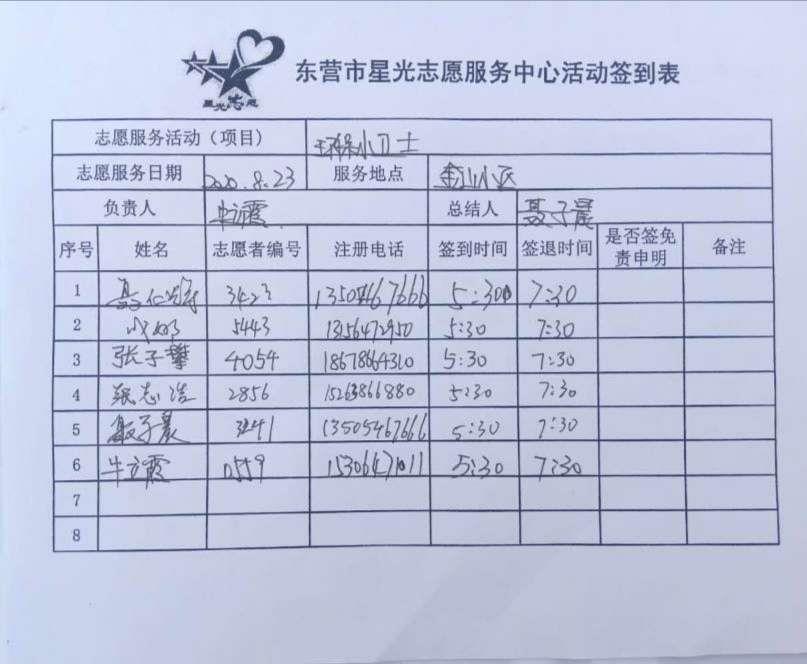 星光志愿
东营市星光志愿服务中心活动签到表
志愿服务活动（项目） 环保小卫士
志愿服务日期 2020.8.23 服务地点 金山小区
负责人 牛立霞 总结人 聂子晨
序号 姓名 志愿者编号 注册电话 签到时间 签退时间 是否签免责申明 备注
1 3423 5:30 7:30
2 5443 13156472950 5:30 7:30
3 张子攀 4054 18678664310 5:30 7:30
4 张志浩 2856 15263866880 5:30 7:30
5 聂子晨 3241 13505467666 5:30 7:30
6 牛立霞 0559 5:30 7:30
7
8